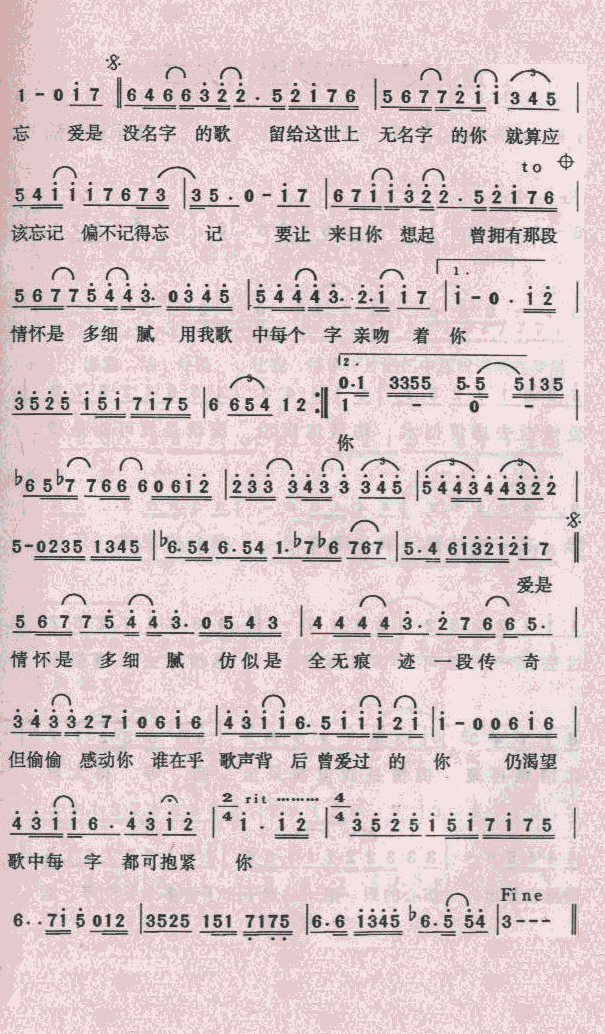 1 - 0 i 7 ‖ 6 4 6 6 3 2 2 . 5 2 i 7 6 | 5 6 7 7 2 i i 3 4 5 |
忘 爱是 没名字 的歌 留给这世上 无名字 的你 就算应
to
5 4 i i i 7 6 7 3 | 3 5 . 0 - i 7 | 6 7 i i 3 2 2 . 5 2 i 7 6
该忘记 偏不记得忘 记 要让 来日你 想起 曾拥有那段
1.
5 6 7 7 5 4 4 3 . 0 3 4 5 | 5 4 4 4 3 . . 2 . i i 7 | i - 0 . i 2 |
情怀是 多细 腻 用我歌 中每个 字 亲吻 着 你
2.
0 . 1 3355 5 . 5 5135
3525 i5i 7i75 | 6 654 12 :‖ 1 - 0 - |
你
♭6 5 ♭7 7 6 6 6 0 6 i 2 | 2 3 3 3 4 3 3 3 4 5 | 5 4 4 3 4 4 3 2 2 |
5 - 0235 1345 | ♭6 . 54 6 . 54 1 . ♭7 ♭6 767 | 5 . 4 6i32i2i 7 ‖
爱是
5 6 7 7 5 4 4 3 . 0 5 4 3 | 4 4 4 4 3 . 2 7 6 6 5 . |
情怀是 多细 腻 仿似是 全无痕 迹 一段传 奇
3 4 3 3 2 7 i 0 6 i 6 | 4 3 i i 6 . 5 i i i 2 i | i - 0 0 6 i 6 |
但偷偷 感动你 谁在乎 歌声背 后 曾爱过 的 你 仍渴望
2/4 rit ········· 4/4
4 3 i i 6 . 4 3 i 2 | i . i 2 | 3 5 2 5 i 5 i 7 i 7 5 |
歌中每 字 都可抱紧 你
Fine
6 . . 7i 5 012 | 3525 151 7175 | 6 . 6 i345 ♭6 . 5 54 | 3 - - - ‖